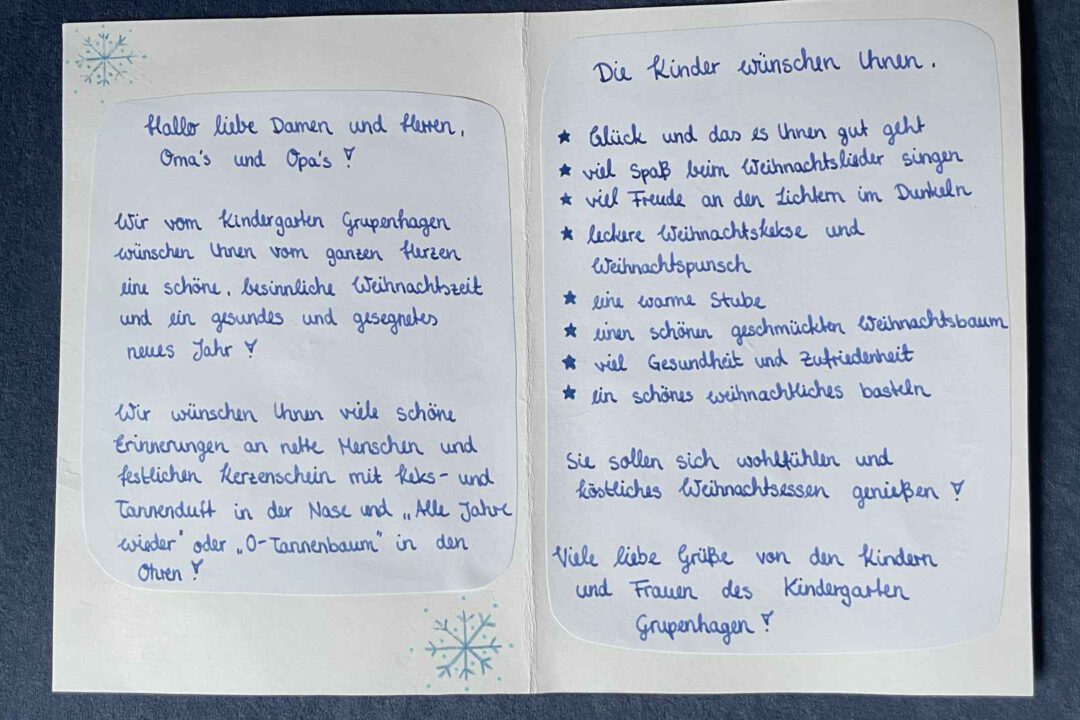 Hallo liebe Damen und Herren,
Oma's und Opa's !
Wir vom Kindergarten Grupenhagen
wünschen Ihnen vom ganzen Herzen
eine schöne, besinnliche Weihnachtszeit
und ein gesundes und gesegnetes
neues Jahr !
Wir wünschen Ihnen viele schöne
Erinnerungen an nette Menschen und
festlichen Kerzenschein mit Keks- und
Tannenduft in der Nase und „Alle Jahre
wieder" oder „O-Tannenbaum" in den
Ohren !
Die Kinder wünschen Ihnen.
★ Glück und das es Ihnen gut geht
★ viel Spaß beim Weihnachtslieder singen
★ viel Freude an den Lichtern im Dunkeln
★ leckere Weihnachtskekse und
Weihnachtspunsch
★ eine warme Stube
★ einen schönen geschmückten Weihnachtsbaum
★ viel Gesundheit und Zufriedenheit
★ ein schönes weihnachtliches basteln
Sie sollen sich wohlfühlen und
köstliches Weihnachtsessen genießen !
Viele liebe Grüße von den Kindern
und Frauen des Kindergarten
Grupenhagen !